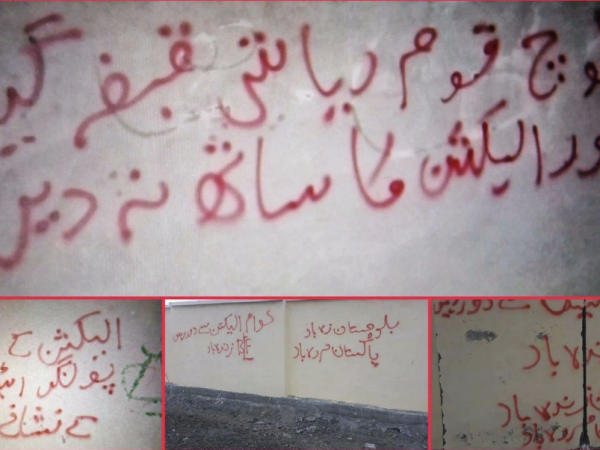 لوچ قوم ریاستی قبضہ گیر
ور الیکشن کا ساتھ نہ دیں
الیکشن کے
پولنگ
کے نشانے
عوام الیکشن سے دور رہیں
زندہ باد
بلوچستان زندہ باد
پاکستان مردہ باد
سے دور رہیں
زندہ باد
زندہ باد
مردہ باد